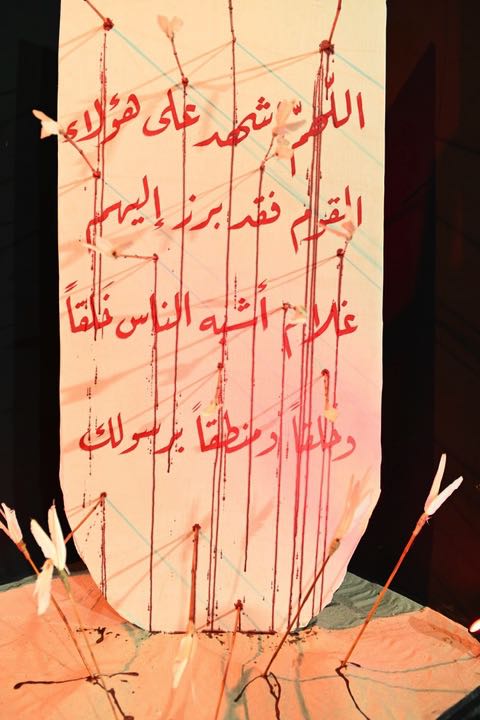 اللّهمّ شهد على هؤلاء
القوم فقد برز إليهم
غلام أشبه الناس خَلقاً
وخلقاً ومنطقاً برسولك